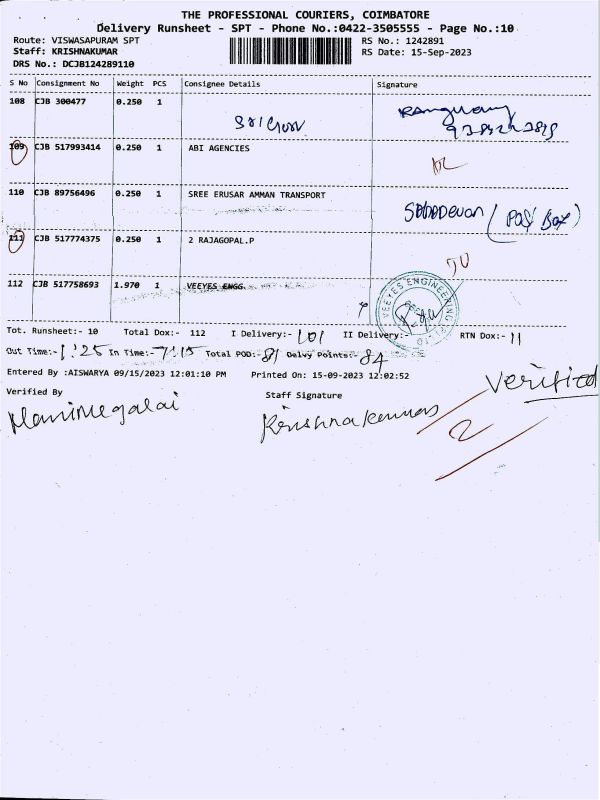 THE PROFESSIONAL COURIERS, COIMBATORE
Delivery Runsheet - SPT - Phone No.:0422-3505555 - Page No.:10
Route: VISWASAPURAM SPT RS No.: 1242891
Staff: KRISHNAKUMAR RS Date: 15-Sep-2023
DRS No.: DCJB124289110
S No Consignment No Weight PCS Consignee Details Signature
108 CJB 300477 0.250 1
109 CJB 517993414 0.250 1 ABI AGENCIES
110 CJB 89756496 0.250 1 SREE ERUSAR AMMAN TRANSPORT
Sahadevan (Post Box)
111 CJB 517774375 0.250 1 2 RAJAGOPAL.P
112 CJB 517758693 1.970 1 VEEYES ENGG
VEEYES ENGINEERING
Tot. Runsheet:- 10 Total Dox:- 112 I Delivery:- 101 II Delivery:- RTN Dox:- 11
Out Time:- 1:25 In Time:- 7:15 Total POD:- 81 Delvy Points:- 84
Entered By :AISWARYA 09/15/2023 12:01:10 PM Printed On: 15-09-2023 12:02:52
Verified
Verified By Staff Signature
Manimegalai Krishnakumar
2